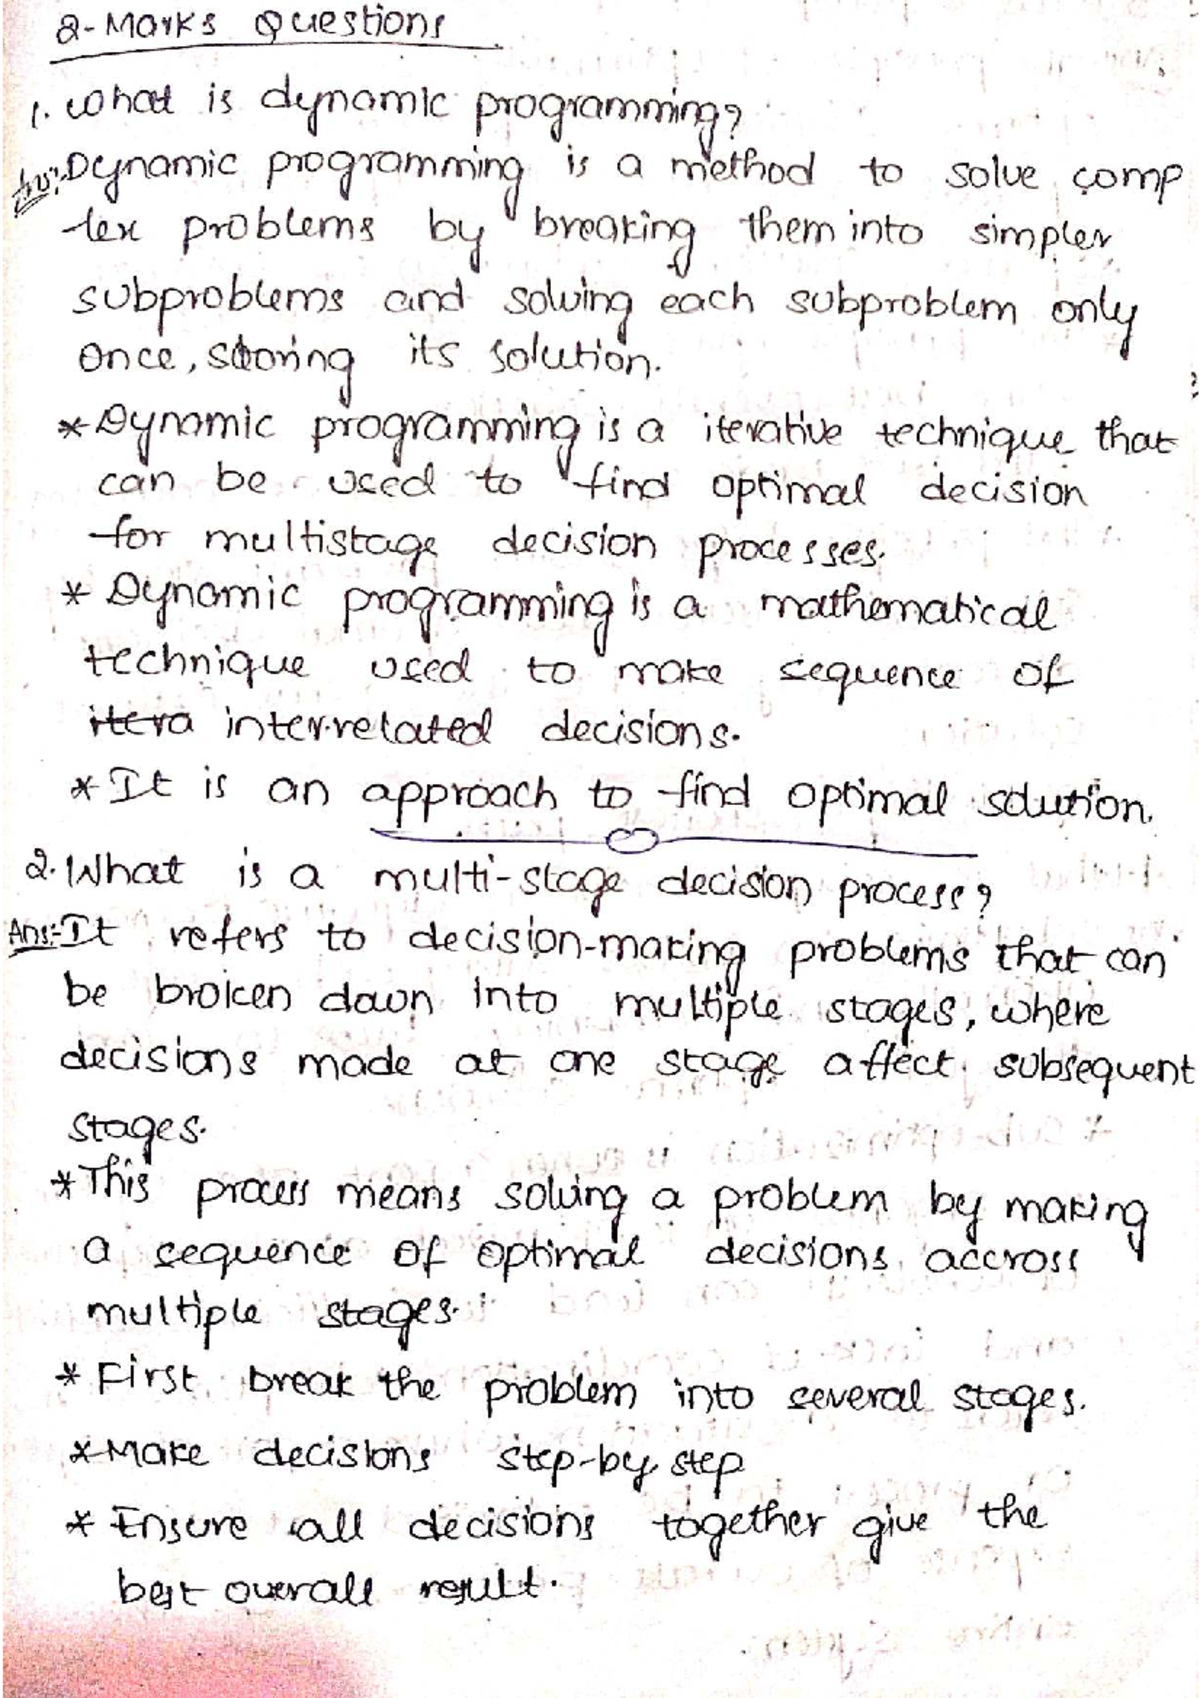 2-Marks Questions
1. What is dynamic programming?
Ans:-Dynamic programming is a method to solve comp
lex problems by breaking them into simpler
subproblems and solving each subproblem only
once, storing its solution.
*Dynamic programming is a iterative technique that
can be used to find optimal decision
for multistage decision processes.
* Dynamic programming is a mathematical
technique used to make sequence of
itera inter-related decisions.
*It is an approach to find optimal solution.
2. What is a multi-stage decision process?
Ans:-It refers to decision-making problems that can
be broken down into multiple stages, where
decisions made at one stage affect subsequent
stages.
*This process means solving a problem by making
a sequence of optimal decisions accross
multiple stages.
* First break the problem into several stages.
*Make decisions step-by step
* Ensure all decisions together give the
best overall result.